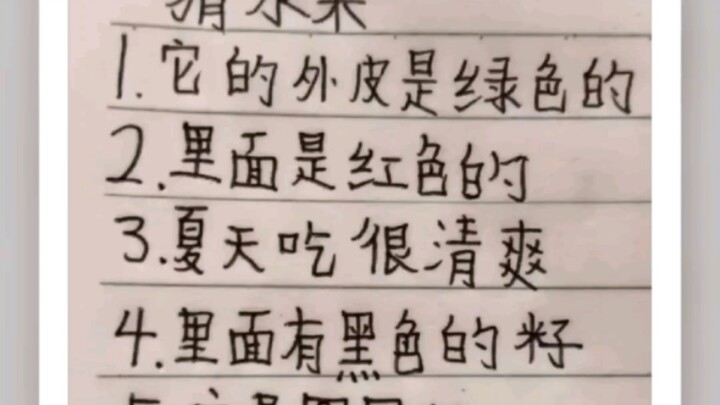 猜水果
1.它的外皮是绿色的
2.里面是红色的
3.夏天吃很清爽
4.里面有黑色的籽